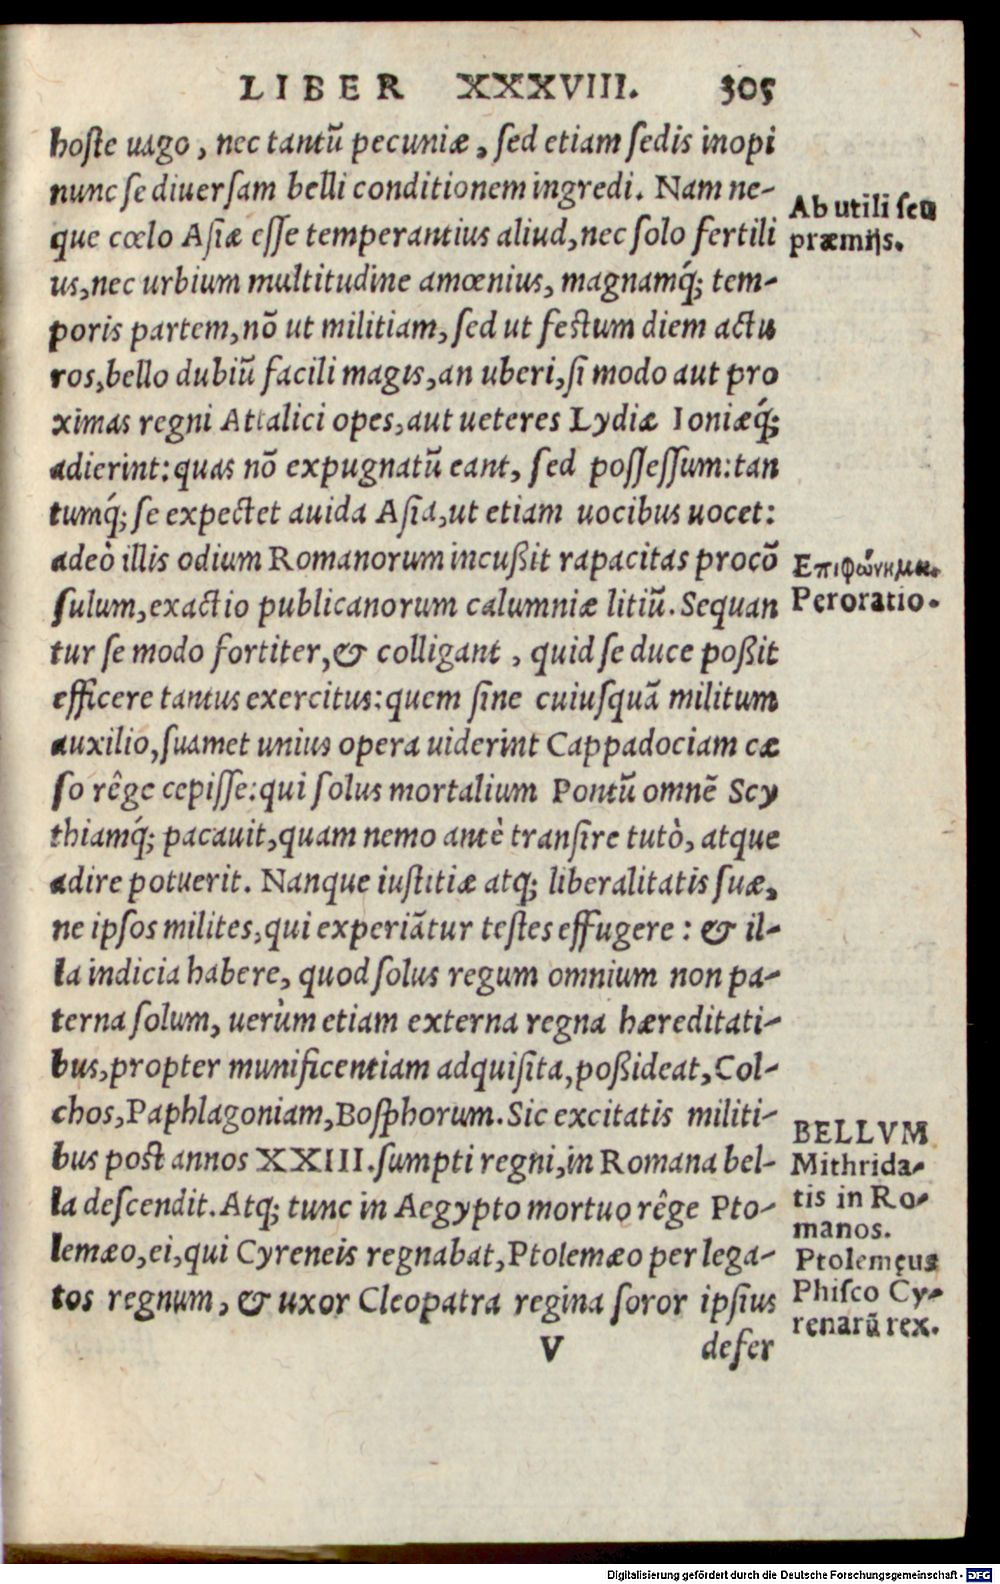 LIBER XXXVIII. 305
hoste uago, nec tantũ pecuniæ, sed etiam sedis inopi
nunc se diuersam belli conditionem ingredi. Nam ne-
que cœlo Asiæ esse temperantius aliud, nec solo fertili
us, nec urbium multitudine amœnius, magnamq́; tem-
poris partem, nõ ut militiam, sed ut festum diem actu
ros, bello dubiũ facili magis, an uberi, si modo aut pro
ximas regni Attalici opes, aut ueteres Lydiæ Ioniæq́;
adierint: quas nõ expugnatũ eant, sed possessum: tan
tumq́; se expectet auida Asia, ut etiam uocibus uocet:
adeò illis odium Romanorum incußit rapacitas procõ
sulum, exactio publicanorum calumniæ litiũ. Sequan
tur se modo fortiter, & colligant, quid se duce poßit
efficere tantus exercitus: quem sine cuiusquã militum
auxilio, suamet unius opera uiderint Cappadociam cæ
so rêge cepisse: qui solus mortalium Pontũ omnẽ Scy
thiamq́; pacauit, quam nemo antè transire tutò, atque
adire potuerit. Nanque iustitiæ atq; liberalitatis suæ,
ne ipsos milites, qui experiãtur testes effugere: & il-
la indicia habere, quod solus regum omnium non pa-
terna solum, uerùm etiam externa regna hæreditati-
bus, propter munificentiam adquisita, poßideat, Col-
chos, Paphlagoniam, Bosphorum. Sic excitatis militi-
bus post annos XXIII. sumpti regni, in Romana bel-
la descendit. Atq; tunc in Aegypto mortuo rêge Pto-
lemæo, ei, qui Cyreneis regnabat, Ptolemæo per lega-
tos regnum, & uxor Cleopatra regina soror ipsius
V defer
Ab utili seu
præmijs.
Επιφώνημα.
Peroratio.
BELLVM
Mithrida-
tis in Ro-
manos.
Ptolemęus
Phisco Cy-
renarũ rex.
Digitalisierung gefördert durch die Deutsche Forschungsgemeinschaft - DFG